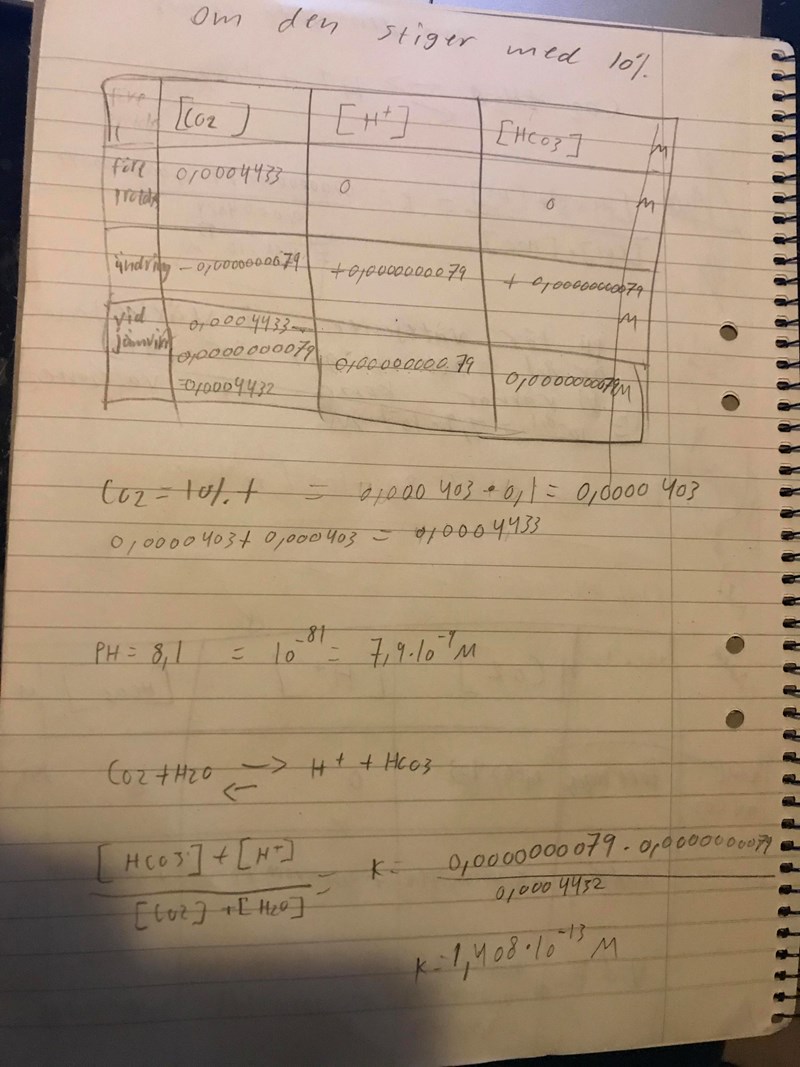 Om den stiger med 10%
[CO2] [H+] [HCO3] M
före 0,0004433 0 0 M
ändring -0,0000000079 +0,0000000079 + 0,0000000079 M
vid 0,0004433-
jämvin 0,0000000079 0,000000000.79 0,0000000079 M
=0,0004432
CO2 = 10% + = 0,000 403 • 0,1 = 0,0000 403
0,0000403 + 0,000403 = 0,0004433
PH = 8,1 = 10^-81 = 7,9.10^-9 M
CO2 + H2O ⇌ H+ + HCO3
[HCO3] + [H+] = K = 0,0000000079 . 0,0000000079
[CO2] + [H2O] 0,0004432
K=1,408.10^-13 M